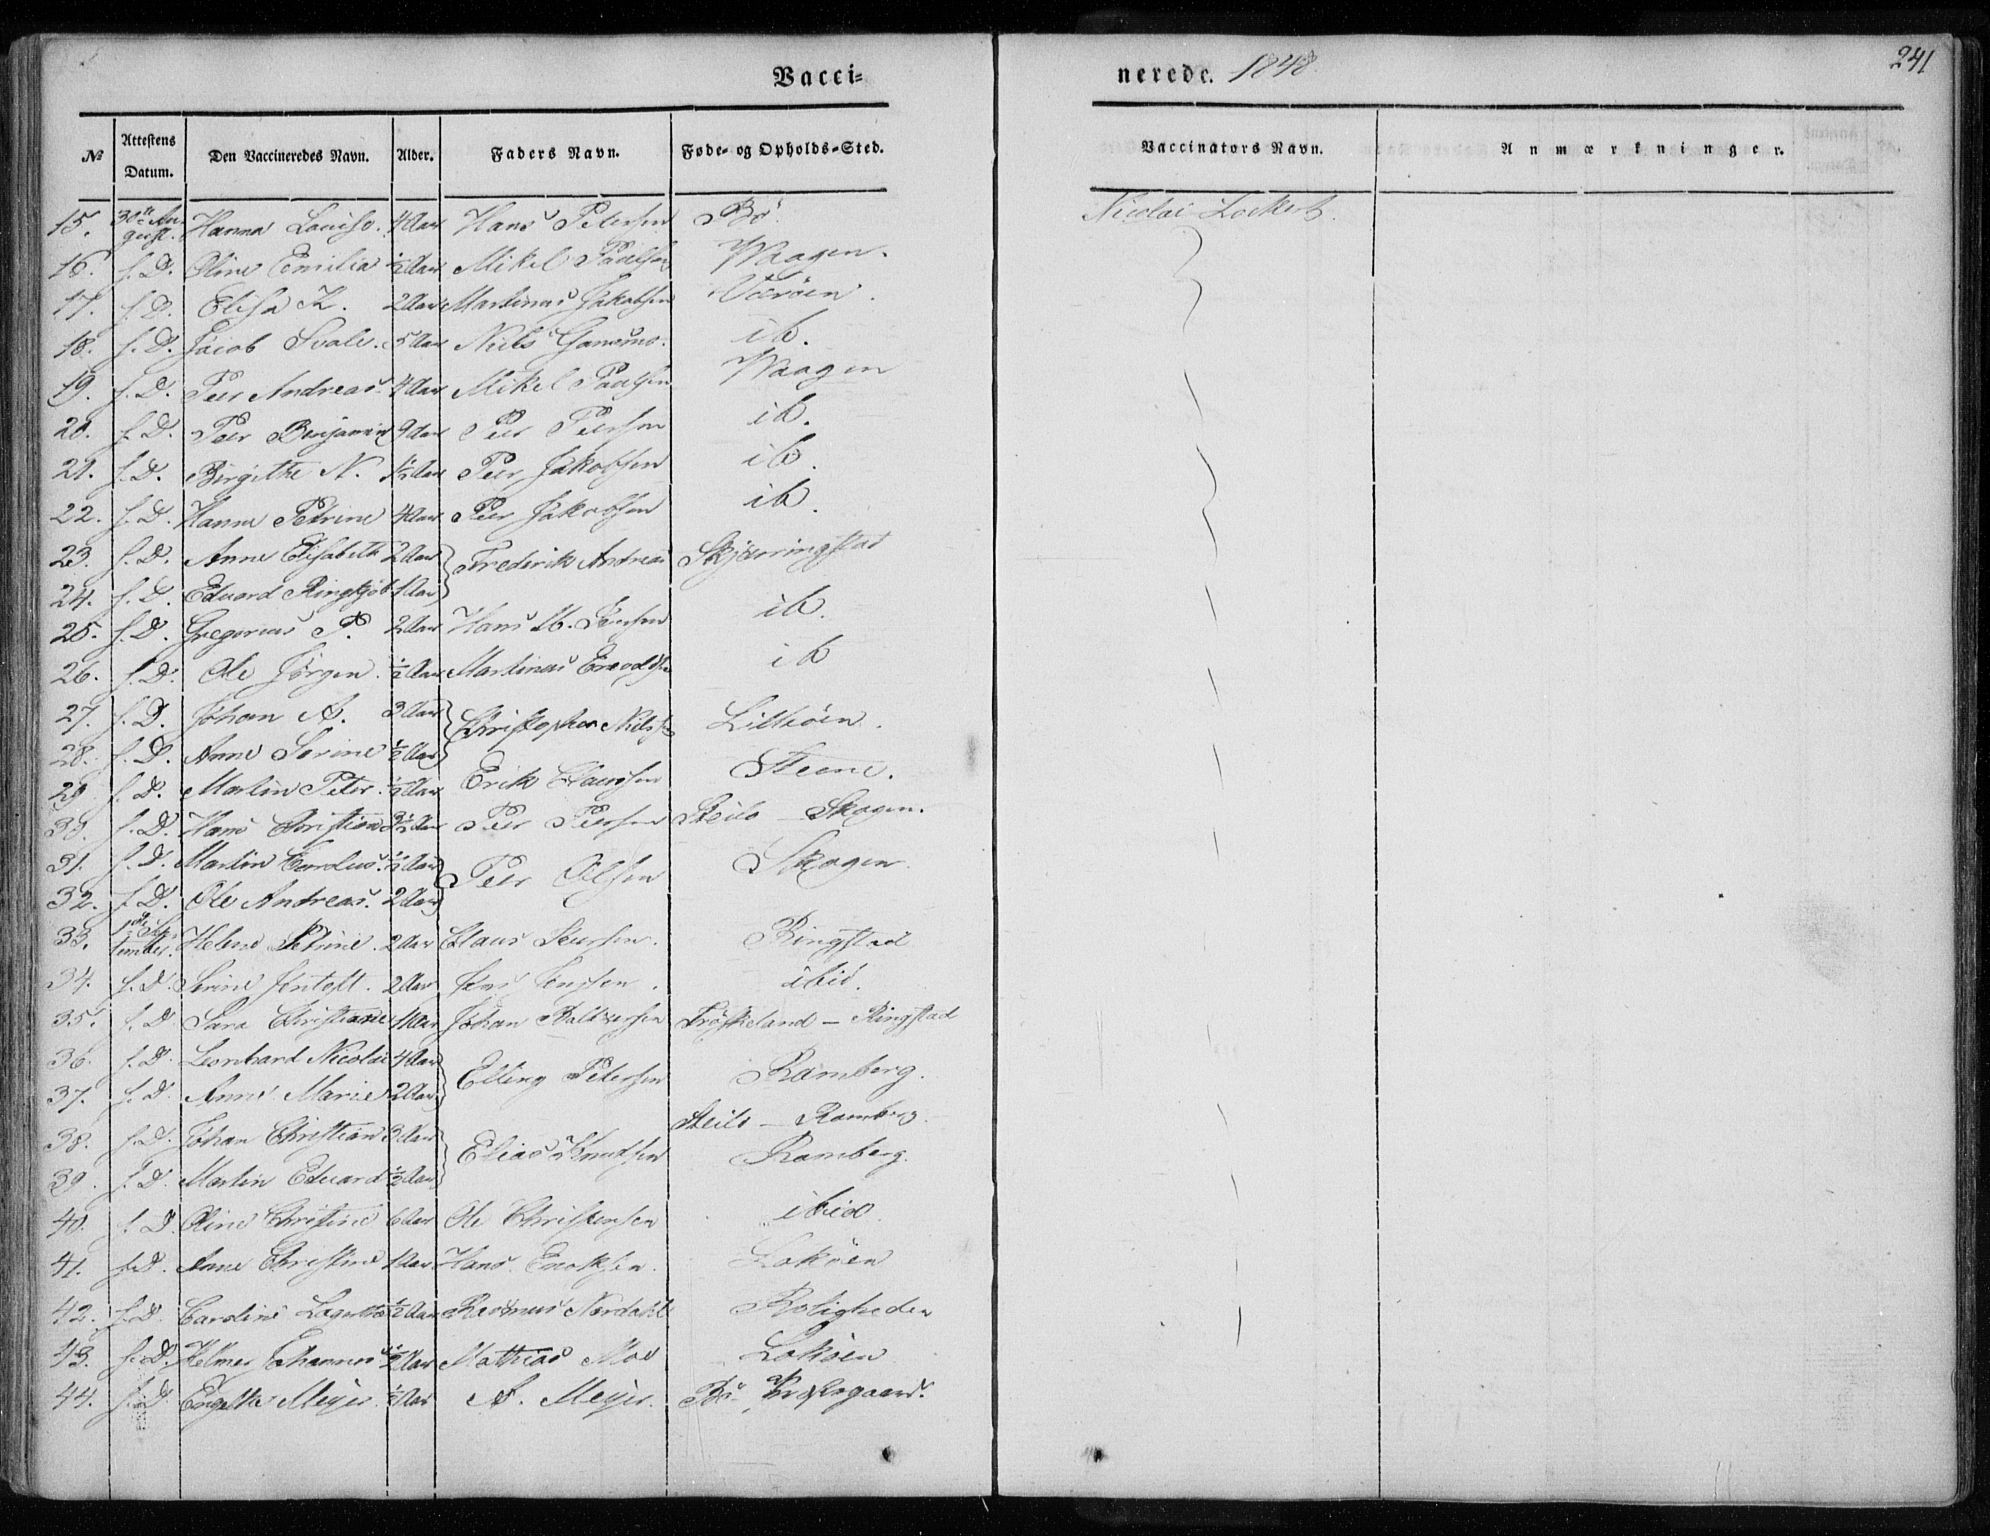 241
Vacci=
nerede. 1848.
№ Attestens Datum. Den Vaccineredes Navn. Alder. Faders Navn. Føde- og Opholds-Sted. Vaccinators Navn. Anmærkninger.
15. 30te August. Hanna Louise. 4 Aar Hans Petersen Bø. Nicolai Lockert.
16. f. D. Oline Emilia ½ Aar Mikel Paalsen Waagen.
17. f. D. Elisa K. 2 Aar Martinus Jakobsen
18. f. D. Jacob Svale. 5 Aar Niels ib.
19. f. D. Peer Andreas. 4 Aar Mikel Paalsen Waagen
20. f. D. Peer Benjamin 9 Aar Peer Peersen ib.
21. f. D. Birgithe N. ½ Aar Peer Jakobsen ib.
22. f. D. Hanna Petrine 4 Aar Peer Jakobsen ib.
23. f. D. Anne Elisabeth 2 Aar Frederik Andreas Skjærringstad
24. f. D. Eduard 1 Aar
25. f. D. Gregorius P. 2 Aar Hans M. Jensen ib.
26. f. D. Ole Jörgen. ½ Aar Martinus ib
27. f. D. Johan A. 3 Aar Christopher Niels.
28. f. D. Anne Sorine ½ Aar
29 f. D. Martin Peter. ½ Aar Erik Clausen Steene.
30. f. D. Hans Christian 3½ Aar Peer Peersen Steilo – Skagen.
31. f. D. Martin Carolus. ½ Aar Peer Olsen Skagen.
32. f. D. Ole Andreas. 2 Aar
33. 1ste September. Helene Petrine. 2 Aar Claus Ringstad
34. f. D. Serine Jentoft. 2 Aar Jens Jensen. ibid.
35. f. D Sara Christiane Johan Baltzersen Fröskeland – Ringstad
36. f. D. Leonhard Nicolai 4 Aar Elling Petersen Ramberg.
37. f. D. Anne Marie 2 Aar
38. f. D. Johan Christian 3 Aar Elias Knudsen Steilo – Ramberg.
39. f. D. Martin Eduard ½ Aar Ramberg.
40. f. D Oline Christine 6 Aar Ole Christensen ibid.
41. f. D. Anne Christine 1 Aar. Hans Enoksen. Laköen
42. f. D. Caroline ½ Aar Rasmus Nordahl Roligheden
43. f. D. Helmer Johannes ½ Aar Mathias Moe Laköen
44. f. D. Engelke Meyer. ½ Aar A. Meyer. Bø